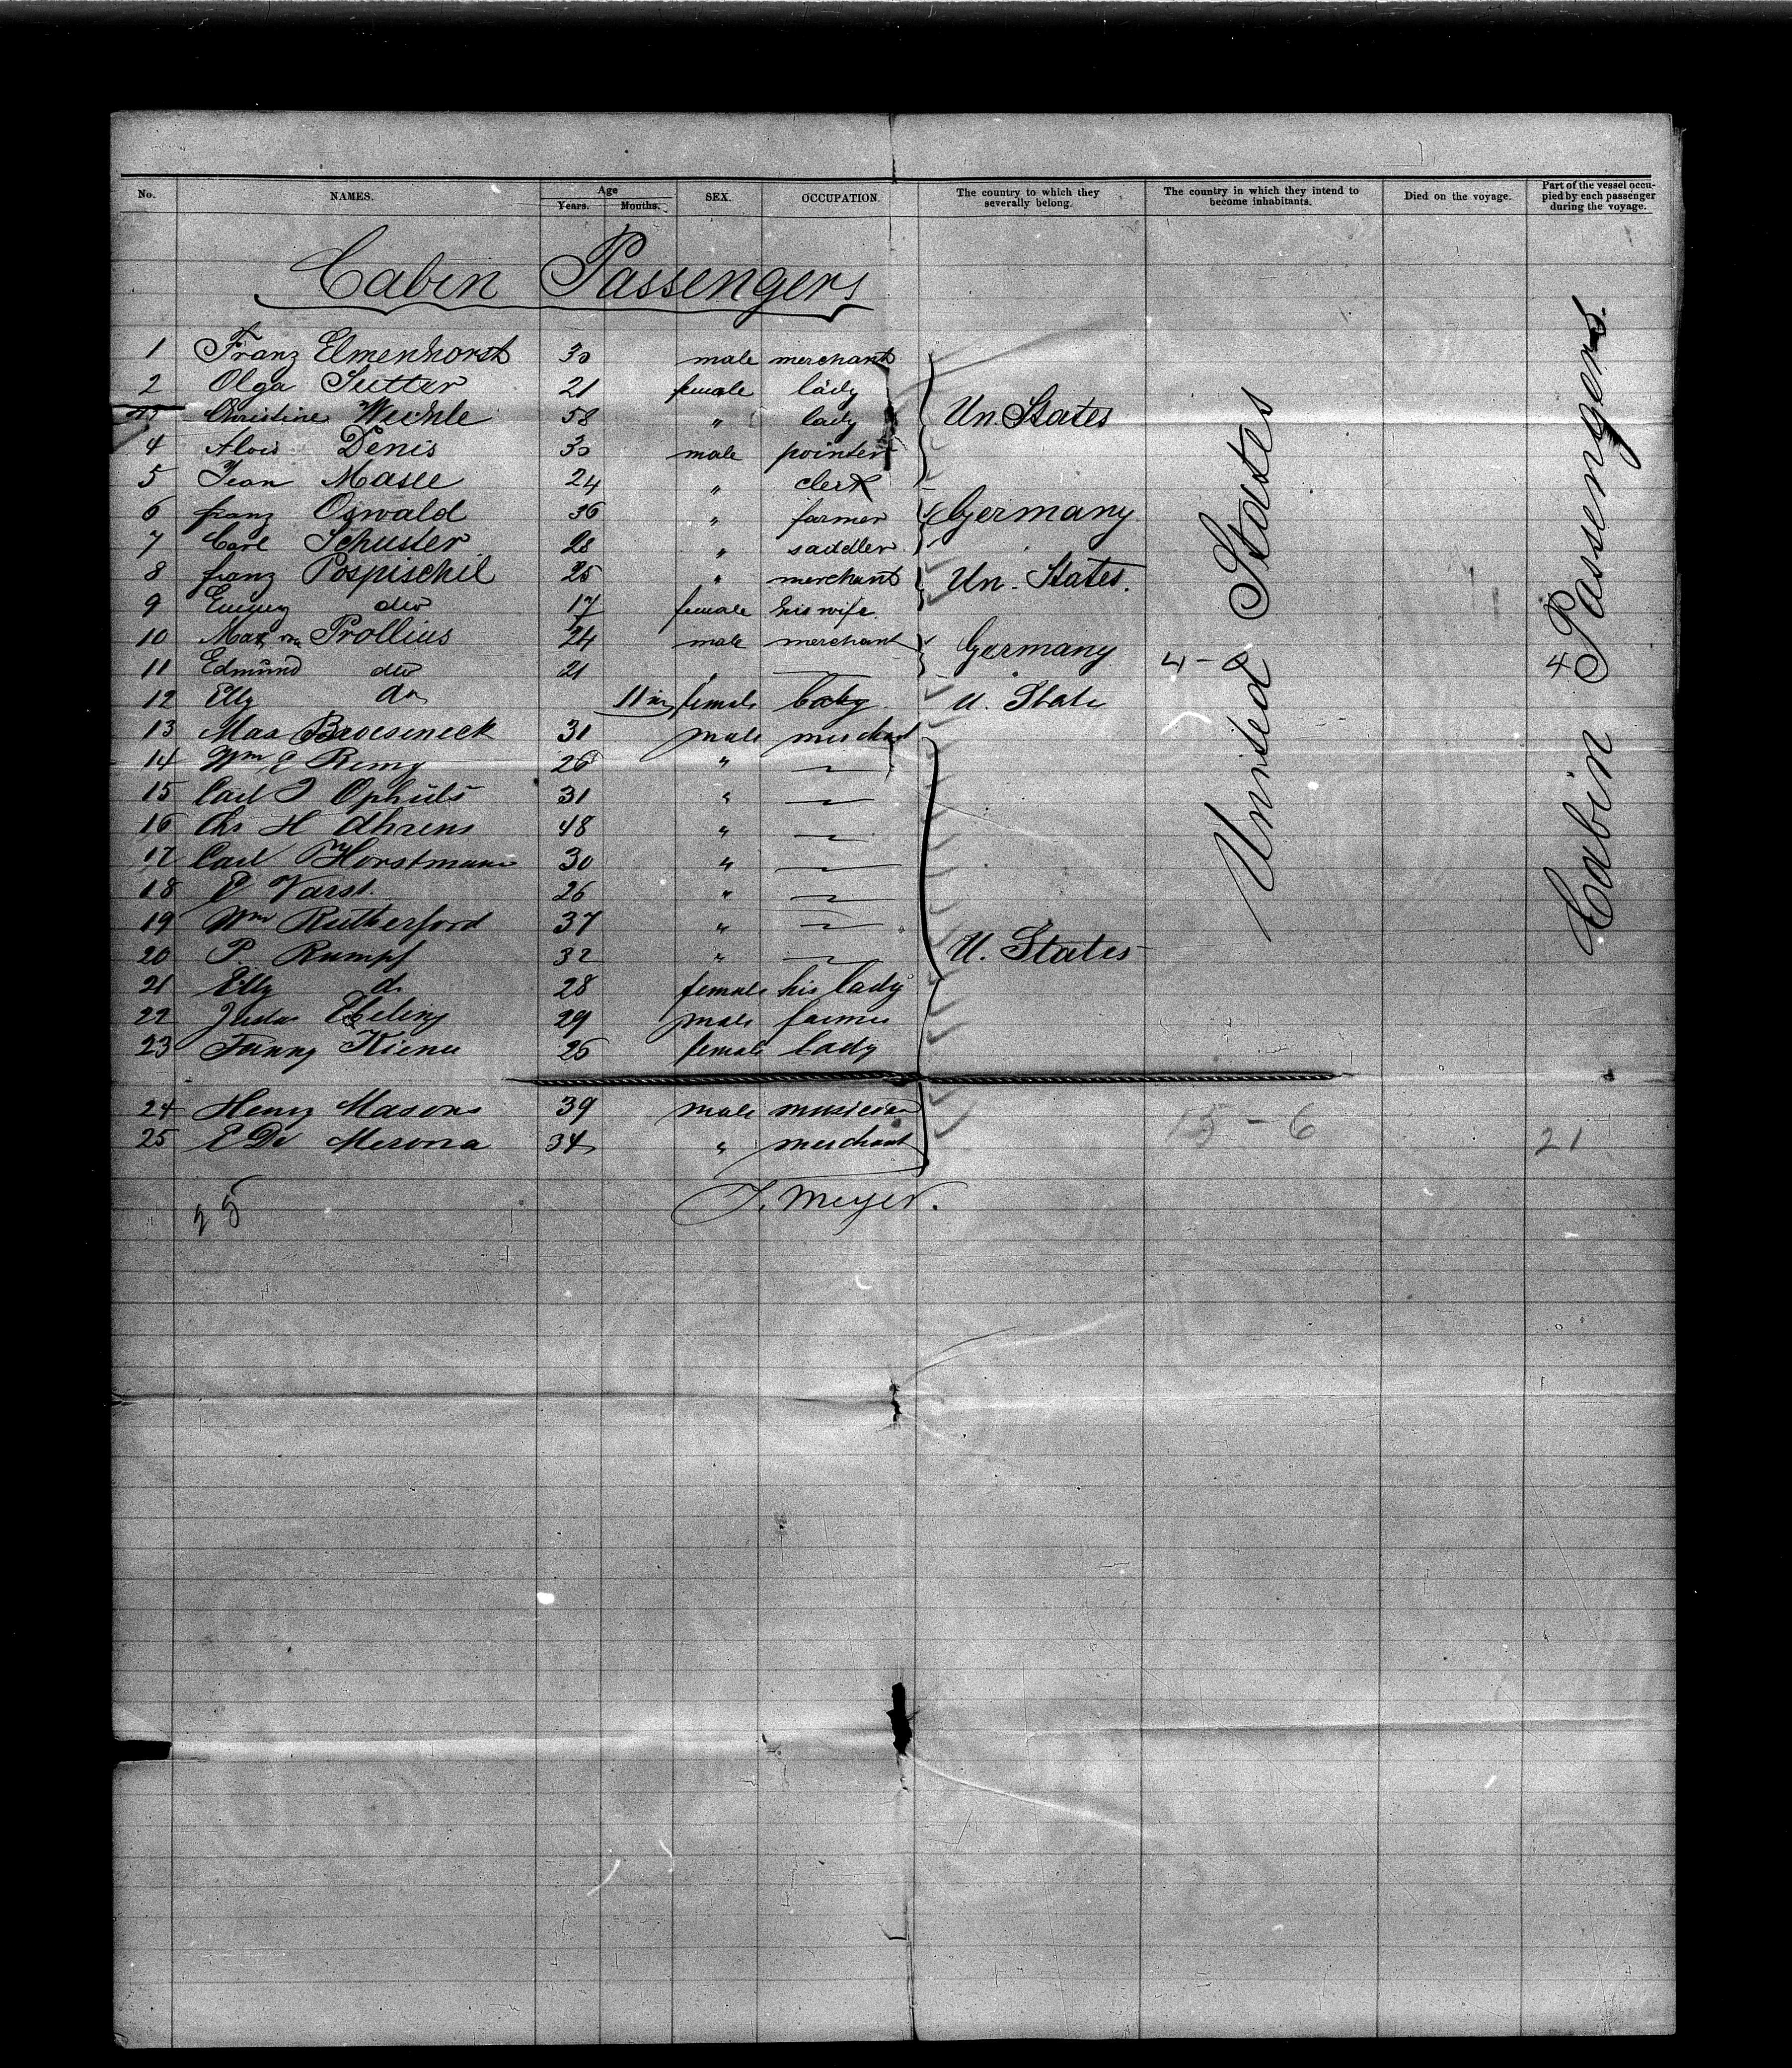 No. NAMES. Age Years. Months. SEX. OCCUPATION. The country to which they severally belong. The country in which they intend to become inhabitants. Died on the voyage. Part of the vessel occupied by each passenger during the voyage.
Cabin Passengers
1 Franz Elmenhorst 30 male merchant
2 Olga Sutter 21 female lady
Christine 58 " lady Un. States
4 Alois Denis 30 male pointer
5 Jean Masee 24 " clerk
6 franz Oswald 36 " farmer Germany
7 Carl Schuster 28 " saddler
8 franz Pospischil 25 " merchant Un. States.
9 dto 17 female his wife
10 Max von Prollius 24 male merchant Germany
11 Edmund dto 21 4-0 4
12 Elly do 11 m female baby U. State
13 Max 31 male merchant
14 Wm Remy 26 "
15 Carl Ophüls 31 "
16 Chs H Ahrens 48 "
17 Carl Horstmann 30 "
18 P Varst. 26 "
19 Wm Rutherford 37 "
20 P. Rumpf 32 " U. States
21 Elly do 28 female his lady
22 Ebeling 29 male farmer
23 Fanny Kiene 26 female lady
24 Henry Masons 39 male musician 15-6
25 E De Merona 34 " merchant 21
25 J. Meyer.
United States
Cabin Passengers.